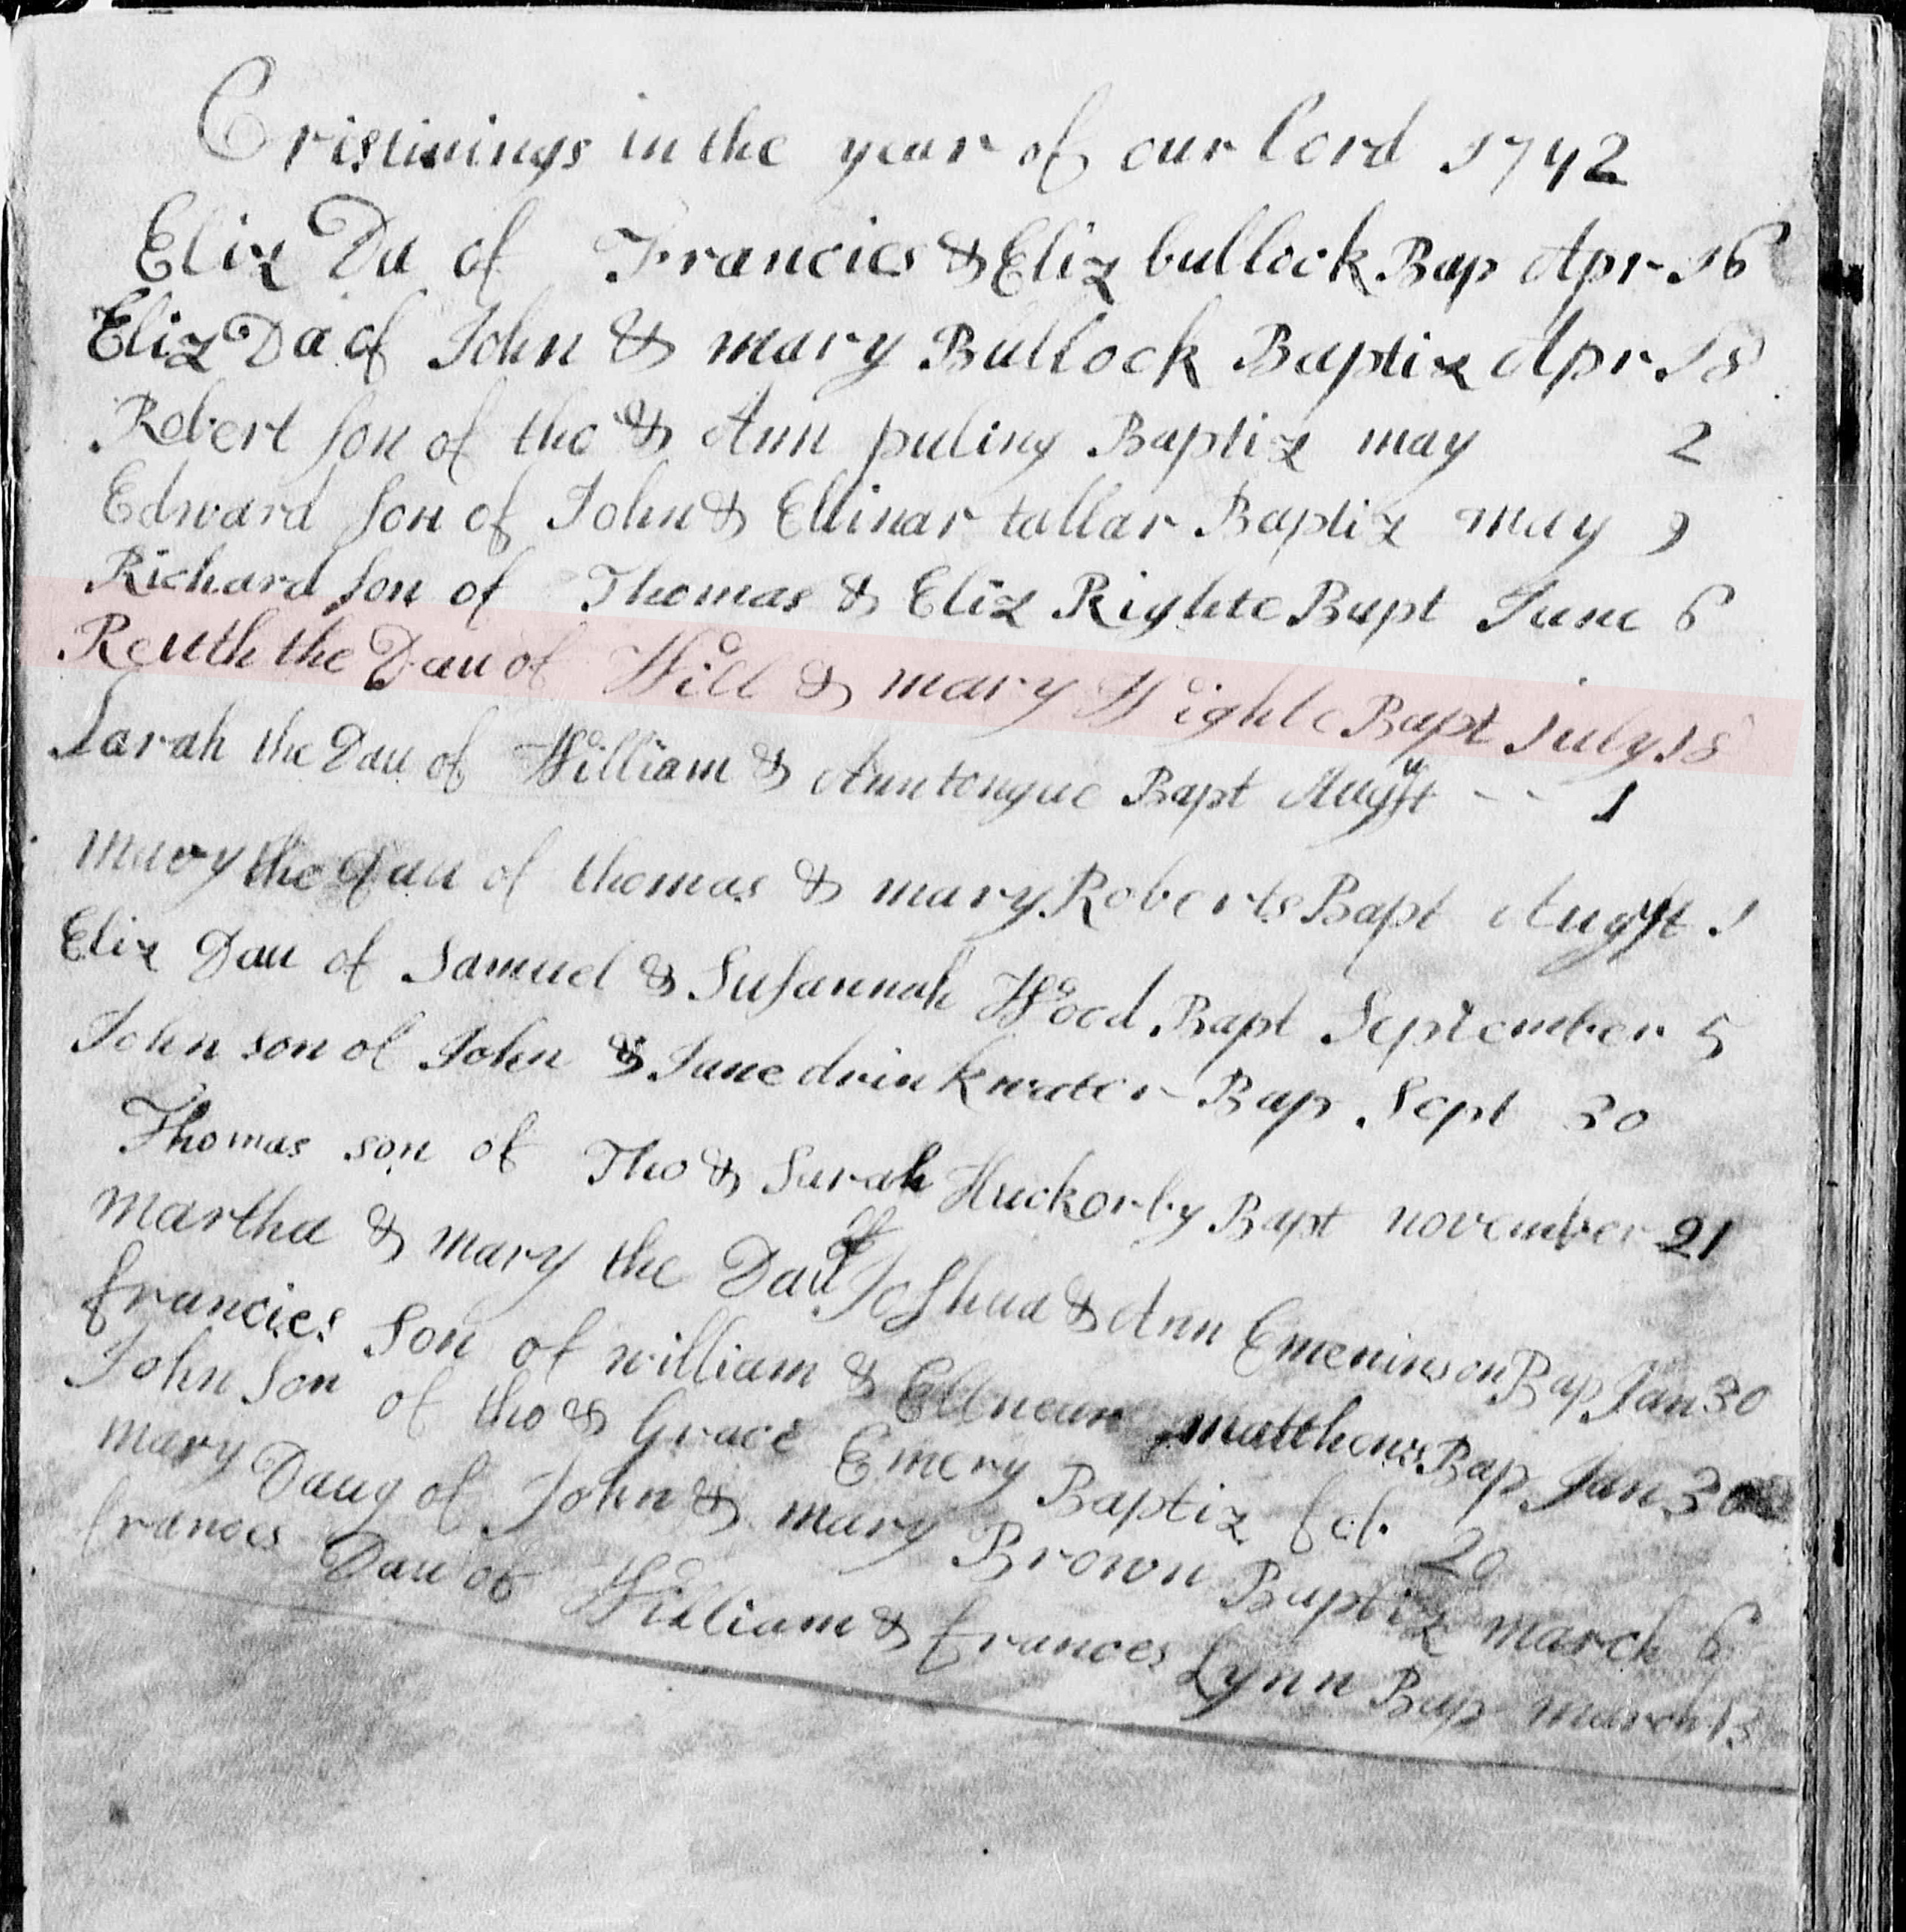 Cristinings in the year of our Lord 1742
Eliz Da of Francies & Eliz bullock Bap Apr 16
Eliz Da of John & mary Bullock Baptiz Apr 18
Robert son of tho & Ann puling Baptiz may 2
Edward son of John & Ellinar tallar Baptiz may 9
Richard son of Thomas & Eliz Righte Bapt June 6
Reuth the Dau of Will & mary Wighte Bapt July 18
Sarah the Dau of William & Ann tongue Bapt Augst -- 1
mary the dau of thomas & mary Roberts Bapt Augst 1
Eliz Dau of Samuel & Susannah Wood Bapt September 5
John son of John & Jane drinkwater Bap Sept 30
Thomas son of Tho & Sarah Huckorby Bapt november 21
martha & mary the Dau of Joshua & Ann Emeninson Bap Jan 30
francies son of william & Ellnear matthews Bap Jan 30
John son of tho & Grace Emery Baptiz feb 20
mary Daug of John & mary Brown Baptiz march 6
frances Dau of William & frances Lynn Bap march 13